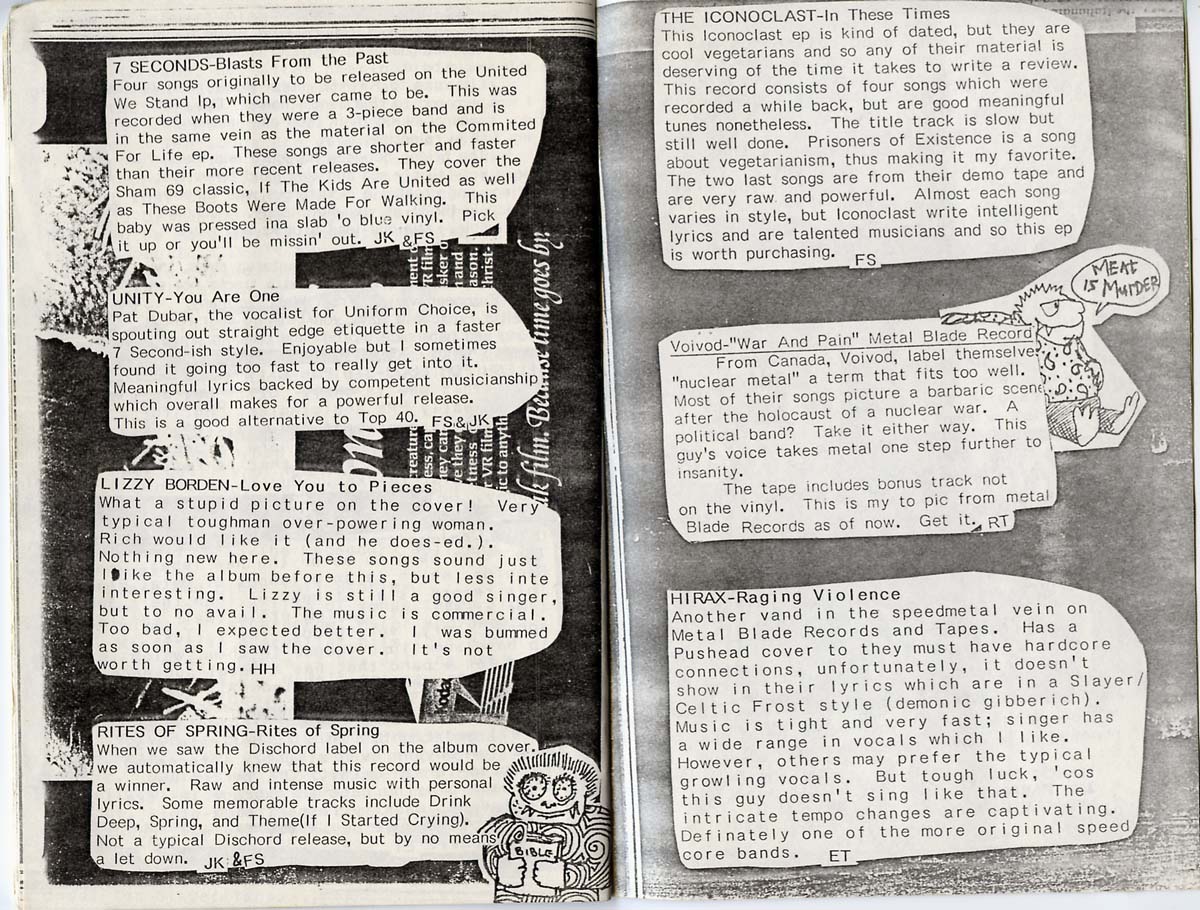 7 SECONDS-Blasts From the Past
Four songs originally to be released on the United
We Stand lp, which never came to be. This was
recorded when they were a 3-piece band and is
in the same vein as the material on the Commited
For Life ep. These songs are shorter and faster
than their more recent releases. They cover the
Sham 69 classic, If The Kids Are United as well
as These Boots Were Made For Walking. This
baby was pressed ina slab 'o blue vinyl. Pick
it up or you'll be missin' out. JK &FS
UNITY-You Are One
Pat Dubar, the vocalist for Uniform Choice, is
spouting out straight edge etiquette in a faster
7 Second-ish style. Enjoyable but I sometimes
found it going too fast to really get into it.
Meaningful lyrics backed by competent musicianship
which overall makes for a powerful release.
This is a good alternative to Top 40. FS&JK
LIZZY BORDEN-Love You to Pieces
What a stupid picture on the cover! Very
typical toughman over-powering woman.
Rich would like it (and he does-ed.).
Nothing new here. These songs sound just
like the album before this, but less inte
interesting. Lizzy is still a good singer,
but to no avail. The music is commercial.
Too bad, I expected better. I was bummed
as soon as I saw the cover. It's not
worth getting. HH
RITES OF SPRING-Rites of Spring
When we saw the Dischord label on the album cover.
we automatically knew that this record would be
a winner. Raw and intense music with personal
lyrics. Some memorable tracks include Drink
Deep, Spring, and Theme(If I Started Crying).
Not a typical Dischord release, but by no means
a let down. JK &FS
BIBLE
film. Because time goes by.
THE ICONOCLAST-In These Times
This Iconoclast ep is kind of dated, but they are
cool vegetarians and so any of their material is
deserving of the time it takes to write a review.
This record consists of four songs which were
recorded a while back, but are good meaningful
tunes nonetheless. The title track is slow but
still well done. Prisoners of Existence is a song
about vegetarianism, thus making it my favorite.
The two last songs are from their demo tape and
are very raw and powerful. Almost each song
varies in style, but Iconoclast write intelligent
lyrics and are talented musicians and so this ep
is worth purchasing. FS
MEAT
IS MURDER
Voivod-"War And Pain" Metal Blade Record
From Canada, Voivod, label themselve
"nuclear metal" a term that fits too well.
Most of their songs picture a barbaric scene
after the holocaust of a nuclear war. A
political band? Take it either way. This
guy's voice takes metal one step further to
insanity.
The tape includes bonus track not
on the vinyl. This is my to pic from metal
Blade Records as of now. Get it. RT
HIRAX-Raging Violence
Another vand in the speedmetal vein on
Metal Blade Records and Tapes. Has a
Pushead cover to they must have hardcore
connections, unfortunately, it doesn't
show in their lyrics which are in a Slayer/
Celtic Frost style (demonic gibberich).
Music is tight and very fast; singer has
a wide range in vocals which I like.
However, others may prefer the typical
growling vocals. But tough luck, 'cos
this guy doesn't sing like that. The
intricate tempo changes are captivating.
Definately one of the more original speed
core bands. ET